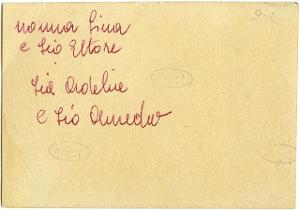 nonna Lina
e zio Ettore
zia Adelie
e zio Amedeo